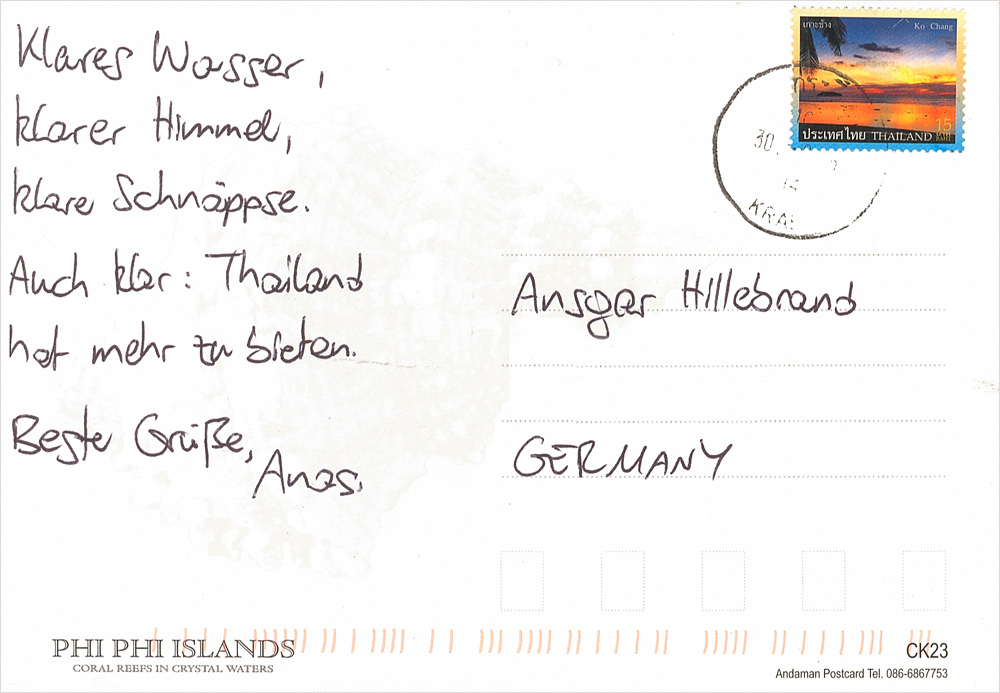 Klares Wasser,
klarer Himmel,
klare Schnäppse.
Auch klar: Thailand
hat mehr zu bieten.
Beste Grüße,
Anas.
เกาะช้าง Ko Chang
15
ประเทศไทย THAILAND
30.
KRA
Ansgar Hillebrand
GERMANY
PHI PHI ISLANDS
CORAL REEFS IN CRYSTAL WATERS
CK23
Andaman Postcard Tel. 086-6867753